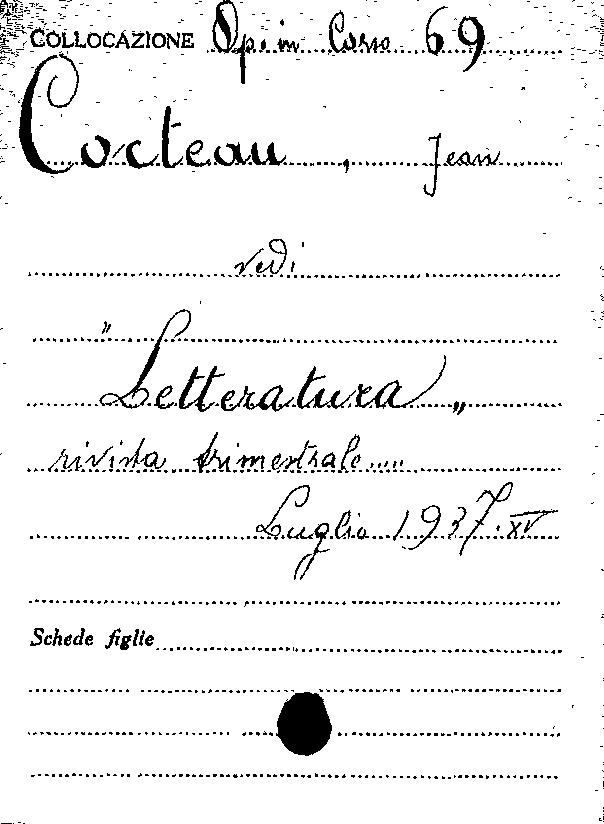 COLLOCAZIONE Op. in Corso 69
Cocteau, Jean
vedi
"Letteratura„
rivista trimestrale.....
Luglio 1937. XV
Schede figlie